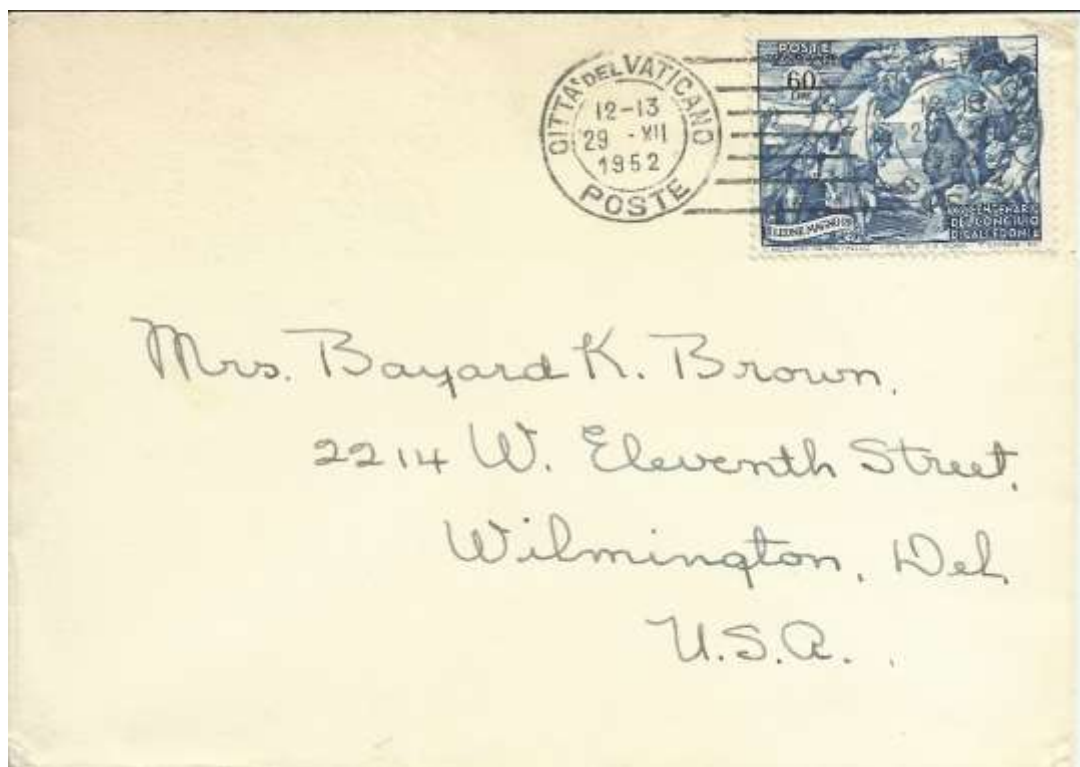 CITTA' DEL VATICANO
12-13
29 - XII
1952
POSTE
POSTE
VATICANE
60
LIRE
LEONE MAGNO
XV CENTENARIO
DEL CONCILIO
DI CALCEDONIA
Mrs. Bayard K. Brown,
2214 W. Eleventh Street,
Wilmington, Del.
U.S.A.